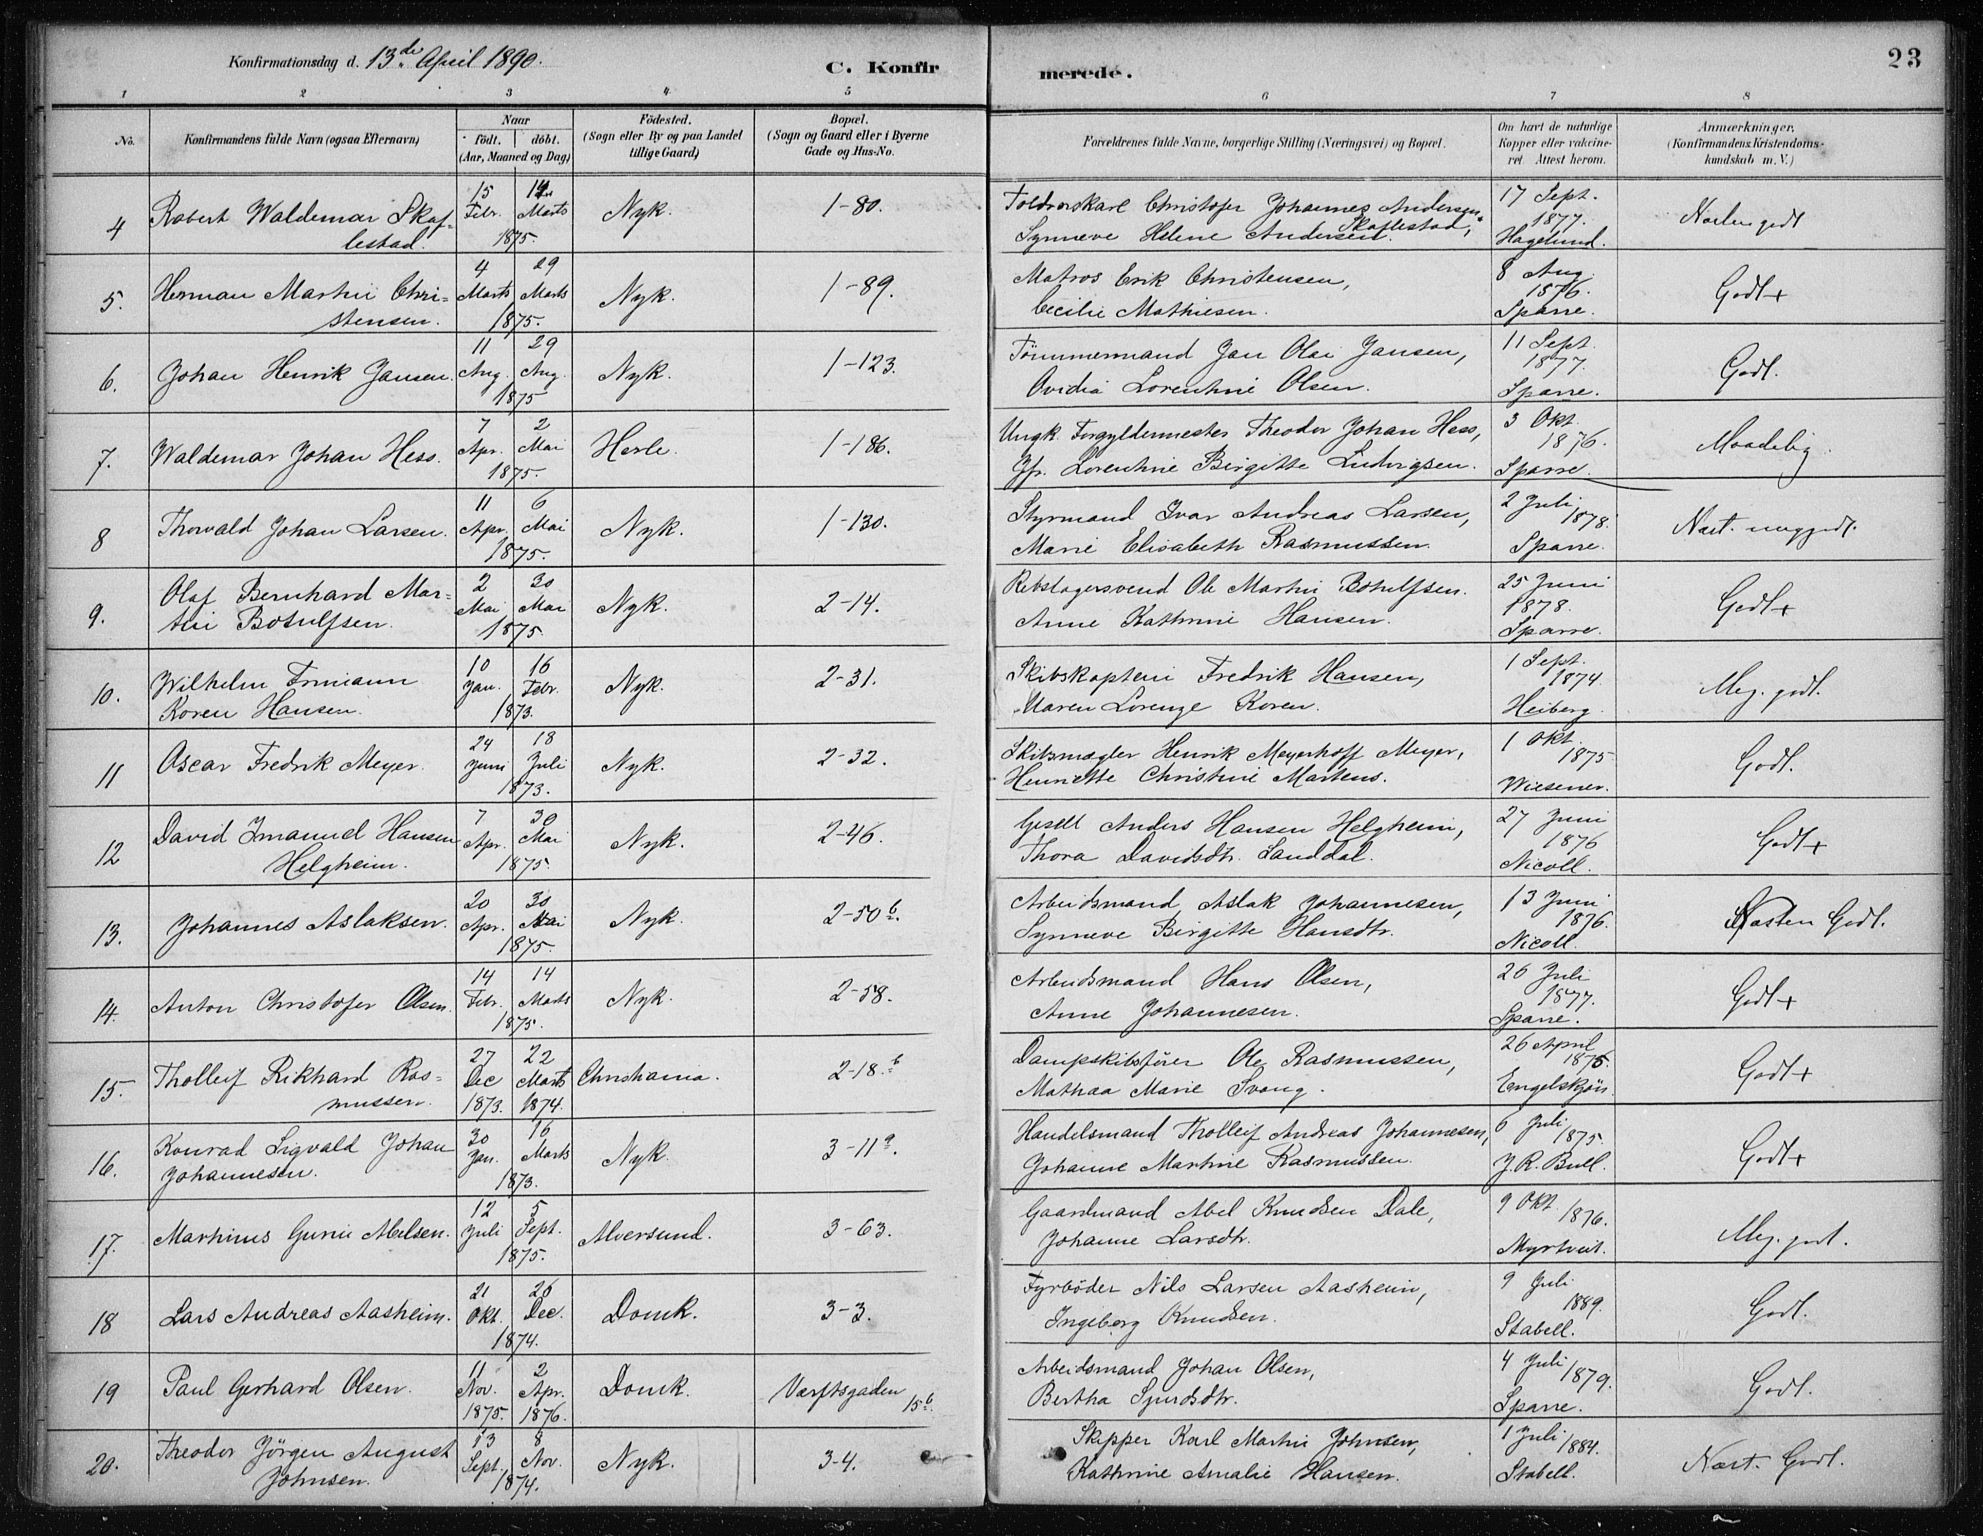 Konfirmationsdag d. 13de April 1890.
C. Konfirmerede.
23
1 2 3 4 5 6 7 8
No.
Konfirmandens fulde Navn (ogsaa Efternavn)
Naar
født. døbt.
(Aar, Maaned og Dag)
Fødested.
(Sogn eller By og paa Landet
tillige Gaard)
Bopæl.
(Sogn og Gaard eller i Byerne
Gade og Hus-No.
Forældrenes fulde Navne, borgerlige Stilling (Næringsvei) og Bopæl.
Om havt de naturlige
Kopper eller vakcine-
ret. Attest herom.
Anmærkninger.
(Konfirmandens Kristendoms-
kundskab m. V.)
4 Robert Waldemar Skaf-
lestad.
15 Febr. 14 Marts 1875.
Nyk.
1-80.
Toldrorskarl Christofer Johannes Andersen
Skaflestad,
Synneve Helene Andersen.
17 Sept. 1877. Hagelund.
godt
5. Herman Martin Chri-
stensen.
4 Marts 29 Marts 1875.
Nyk.
1-89.
Matros Erik Christensen,
Cecilie Mathiesen.
8 Aug. 1876. Sparre.
Godt+
6. Johan Henrik Jansen.
11 Aug. 29 Aug. 1875
Nyk.
1-123.
Tømmermand Jan Olai Jansen,
Ovidia Lorentine Olsen.
11 Sept. 1877. Sparre.
Godt.
7. Waldemar Johan Hess.
7 Apr. 2 Mai 1875.
Herle.
1-186.
Ungk. Forgyldermester Theodor Johan Hess,
Lorentine Birgitte Ludvigsen.
3 Okt. 1876. Sparre
Maadelig.
8 Thorvald Johan Larsen.
11 Apr. 6 Mai 1875.
Nyk.
1-130.
Styrmand Ivar Andreas Larsen,
Marie Elisabeth Rasmussen.
2 Juli 1878. Sparre.
Næst. meg godt.
9. Olaf Bernhard Mar-
tin Botulfsen.
2 Mai 30 Mai 1875.
Nyk.
2-14.
Rebslagersvend Ole Martin Botulfsen.
Anne Kathrine Hansen.
25 Juni 1878. Sparre.
Godt+
10. Wilhelm Frimann
Koren Hansen.
10 Jan. 16 Febr. 1873.
Nyk.
2-31.
Skibskaptein Fredrik Hansen,
Maren Lorenze Koren.
1 Sept. 1874. Heiberg.
Meg. godt.
11 Oscar Fredrik Meyer.
24 Juni 18 Juli 1873.
Nyk.
2-32.
Skibsmægler Henrik Meyerhoff Meyer,
Henriette Christine Martens.
1 Okt. 1875 Wiesener.
Godt.
12 David Imanuel Hansen
Helgheim.
7 Apr. 30 Mai 1875.
Nyk.
2-46.
Gesell Anders Hansen Helgheim,
Thora Davidsdtr. Sanddal.
27 Juni 1876 Nicoll.
Godt+
13. Johannes Aslaksen.
20 Apr. 30 Mai 1875.
Nyk.
2-50b.
Arbeidsmand Aslak Johannesen,
Synneve Birgitte Hansdtr.
13 Juni 1876. Nicoll.
Næsten Godt.
14. Anton Christofer Olsen.
14 Febr. 14 Marts 1875.
Nyk.
2-58.
Arbeidsmand Hans Olsen,
Anne Johannesen.
26 Juli 1877. Sparre.
Godt+
15. Tholleif Rikhard Ras-
mussen.
27 Dec 1873. 22 Marts 1874.
Christiania.
2-18b.
Dampskibsfører Ole Rasmussen,
Mathea Marie Svang.
26 April 1875 Engelskjøn.
Godt+
16. Konrad Sigvald Johan
Johannesen.
30 Jan. 16 Marts 1873.
Nyk.
3-11a.
Handelsmand Tholleif Andreas Johannesen,
Johanne Martine Rasmussen.
6 Juli 1875. J.R. Bull.
Godt+
17. Martinus Gurin Abelsen.
12 Juli 5 Sept. 1875.
Alversund.
3-63.
Gaardmand Abel Knudsen Dale,
Johanne Larsdtr.
9 Okt 1876. Myrtveit.
Meg. godt.
18 Lars Andreas Aasheim.
21 Okt. 26 Dec. 1874.
Domk.
3-3.
Fyrbøder Nils Larsen Aasheim,
Ingeborg Knudsen.
9 Juli 1889. Stabell.
Godt.
19 Paul Gerhard Olsen.
11 Nov. 1875. 2 Apr. 1876.
Domk.
Værftsgaden 15b.
Arbeidsmand Johan Olsen,
Bertha Sjurdsdtr.
4 Juli 1879. Sparre.
Godt.
20. Theodor Jørgen August
Johnsen.
13 Sept. 8 Nov. 1874.
Nyk.
3-4.
Skipper Karl Martin Johnsen,
Kathrine Amalie Hansen.
1 Juli 1884. Stabell.
Næst. Godt.